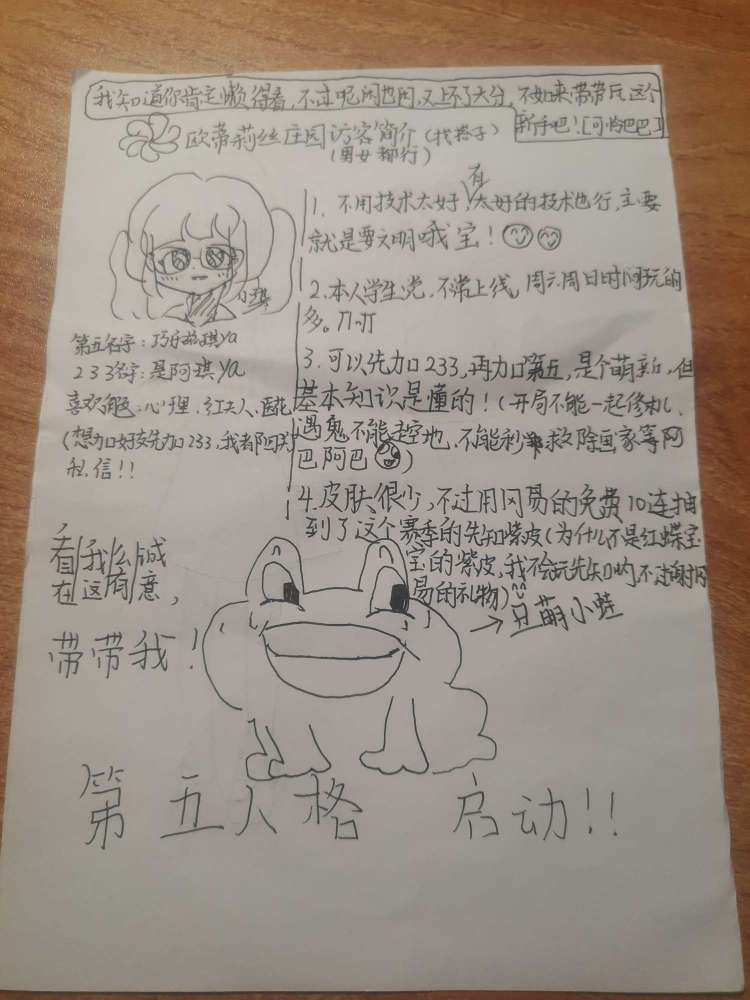 我知道你肯定懒得看,不过呢闲也闲,又上不了大分,不如来带带瓦这个
新手吧![可怜巴巴]
欧蒂莉丝庄园访客简介(找搭子)
(男女都行)
1.不用技术太好有太好的技术也行,主要
就是要文明哦宝!
2.本人学生党,不常上线,周六周日时间玩的
多。叮叮
3.可以先加233,再加第五,是个萌新,但
基本知识是懂的!(开局不能一起修机,
遇鬼不能走空地,不能秒救除画家等阿
巴阿巴)
4.皮肤很少,不过用网易的免费10连抽
到了这个赛季的先知紫皮(为什么不是红蝶宝
宝的紫皮,我不会玩先知哟,不过谢谢网
易的礼物)
第五名字:巧好兹琪ya
233名字:是阿琪ya
喜欢角色:心理、红夫人、医花
(想加好友先加233,我都回关
私信!!
看我么诚
在这有意,
带带我!
旦萌小蛙
第五人格 启动!!